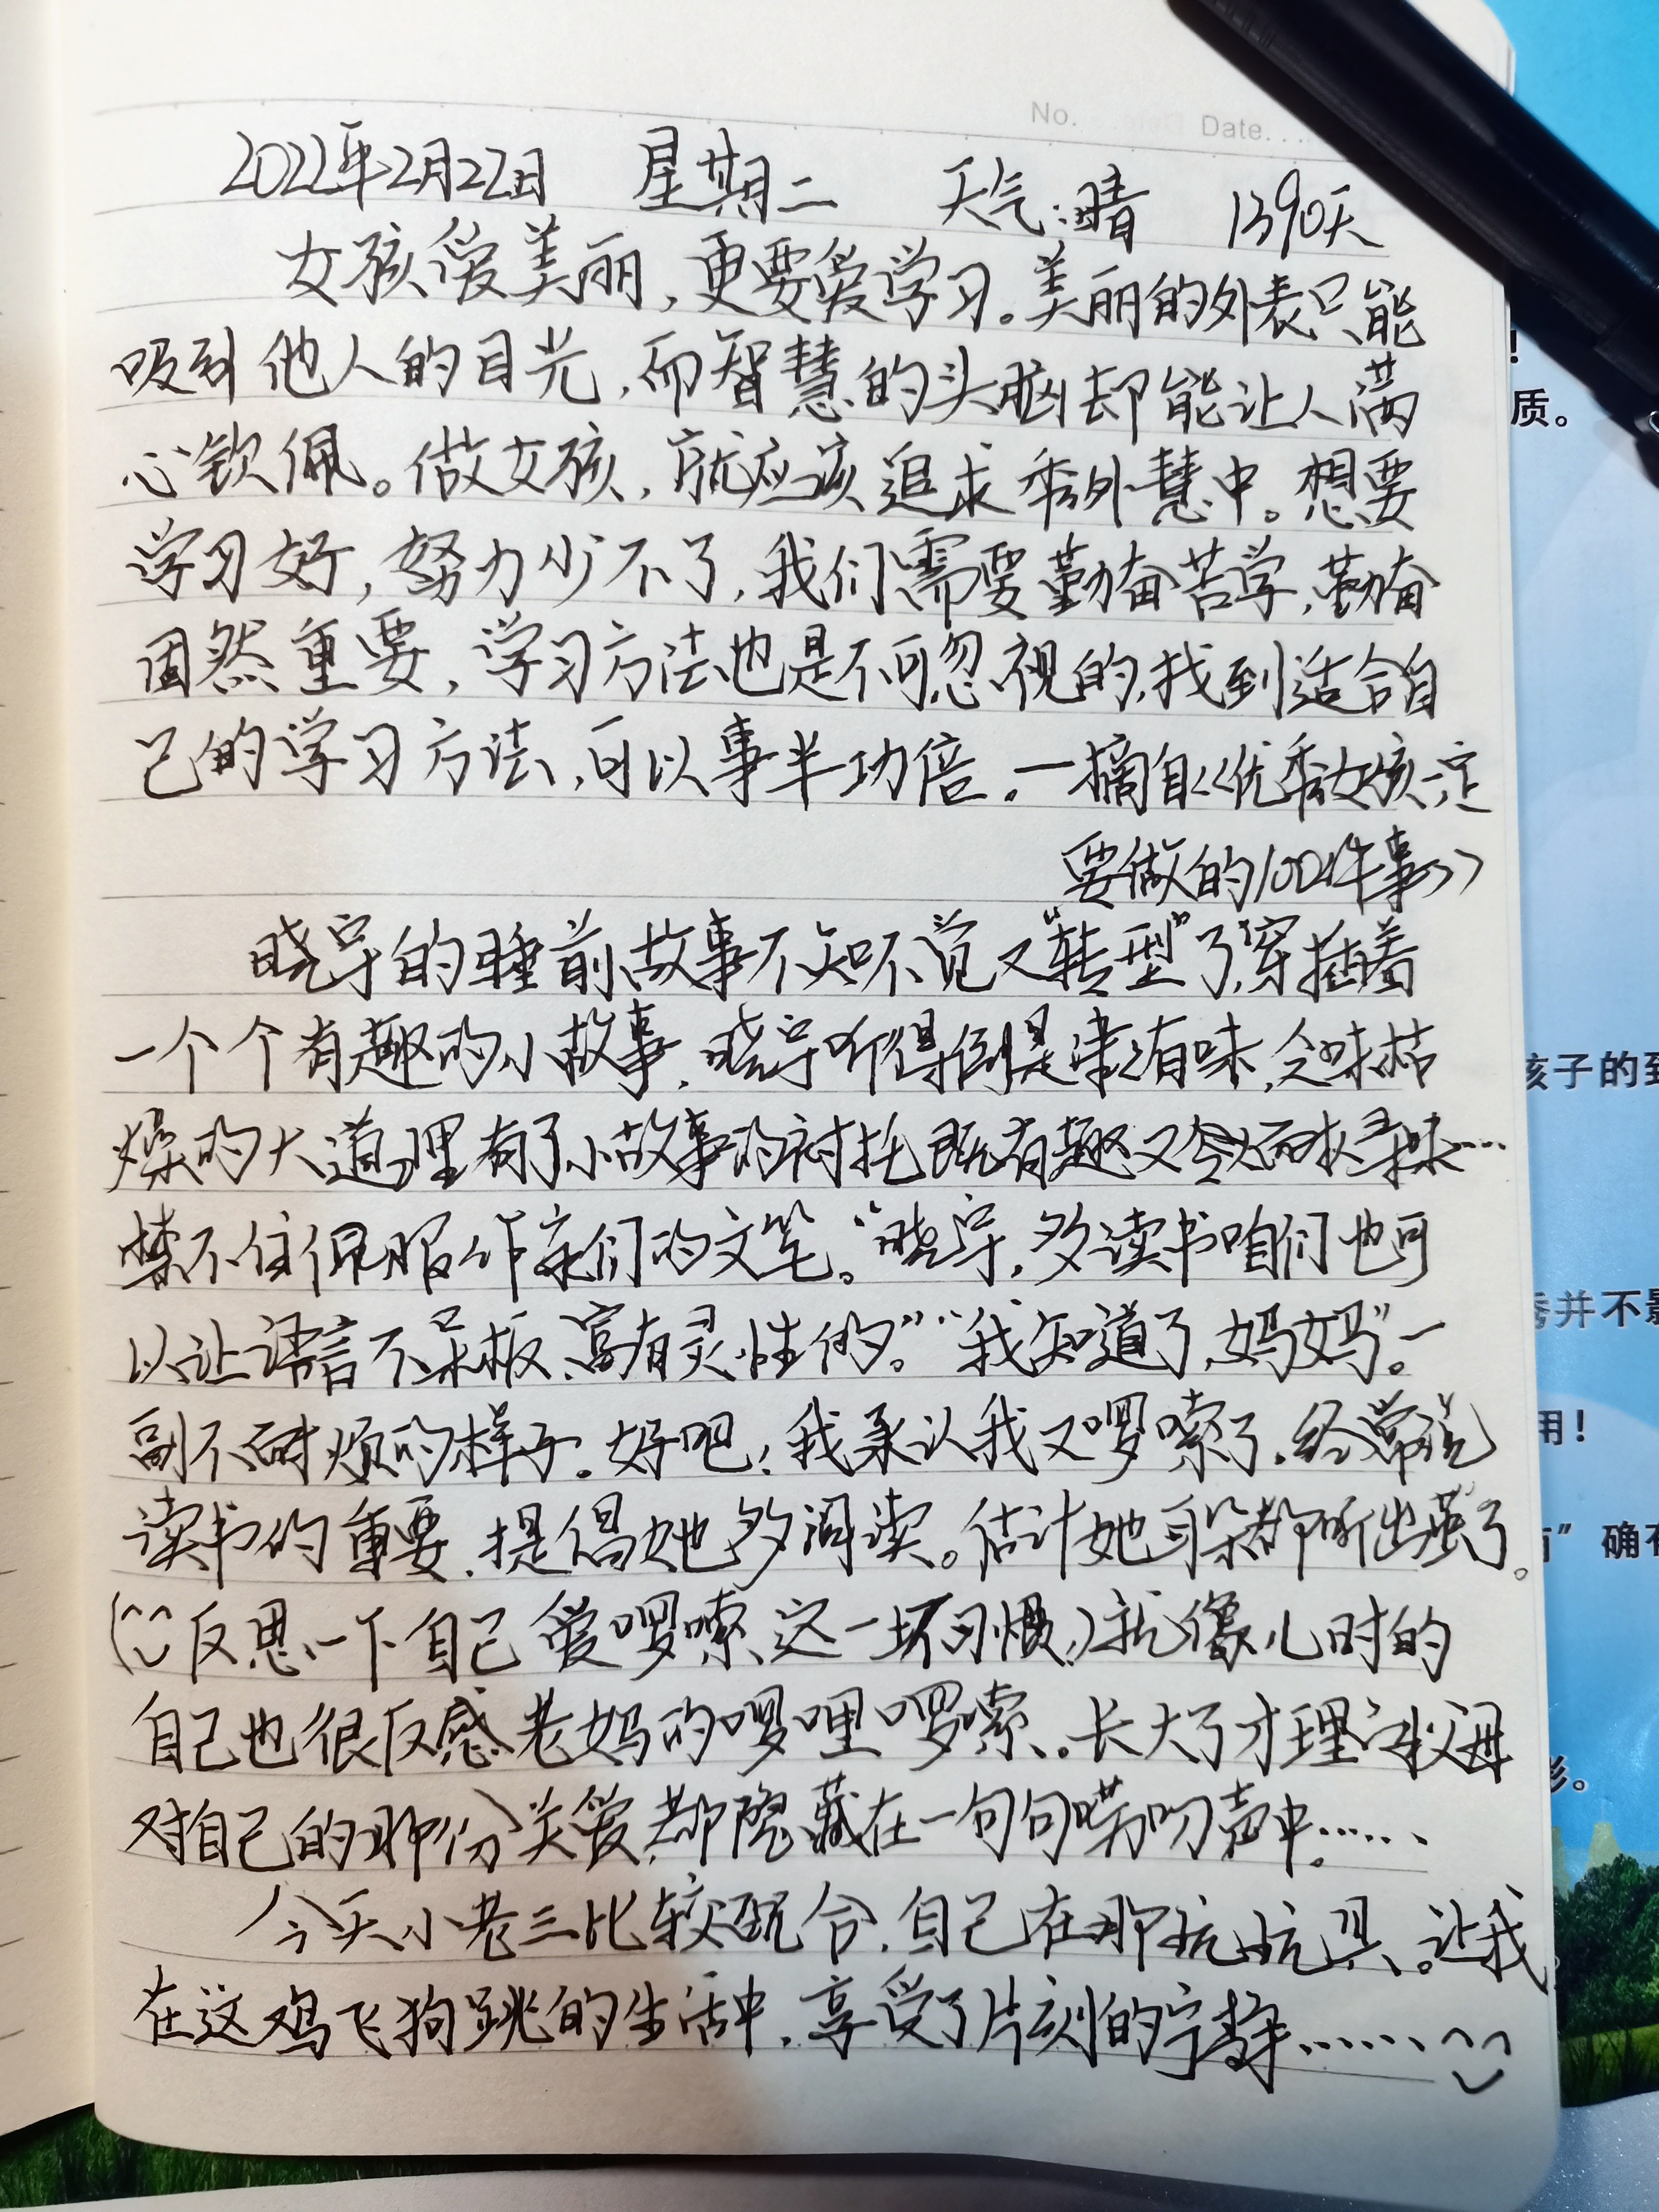 No. Date...
2022年2月22日 星期二 天气:晴 1390天
女孩爱美丽,更要爱学习。美丽的外表只能
吸引他人的目光,而智慧的头脑却能让人满
心钦佩。做女孩,就应该追求秀外慧中。想要
学习好,努力少不了,我们需要勤奋苦学,勤奋
固然重要,学习方法也是不可忽视的,找到适合自
己的学习方法,可以事半功倍。一摘自《优秀女孩一定
要做的100件事》
晓宇的睡前故事不知不觉又“转型”了,穿插着
一个个有趣的小故事,晓宇听得倒是津津有味,乏味枯
燥的大道理有了小故事的衬托既有趣又耐人寻味…
禁不住佩服作家们的文笔。“晓宇,多读书咱们也可
以让语言不呆板、富有灵性的。”“我知道了,妈妈”。一
副不耐烦的样子。好吧!我承认我又啰嗦了,经常说
读书的重要,提倡她多阅读。估计她耳朵都听出茧了。
(反思一下自己爱啰嗦这一坏习惯,)就像儿时的
自己也很反感老妈的啰哩啰嗦。长大了才理解父母
对自己的那份关爱,都隐藏在一句句唠叨声中……
今天小老三比较配合,自己在那玩玩具。让我
在这鸡飞狗跳的生活中,享受了片刻的宁静……
!
质。
孩子的到
秀并不影
用!
”确有
影。